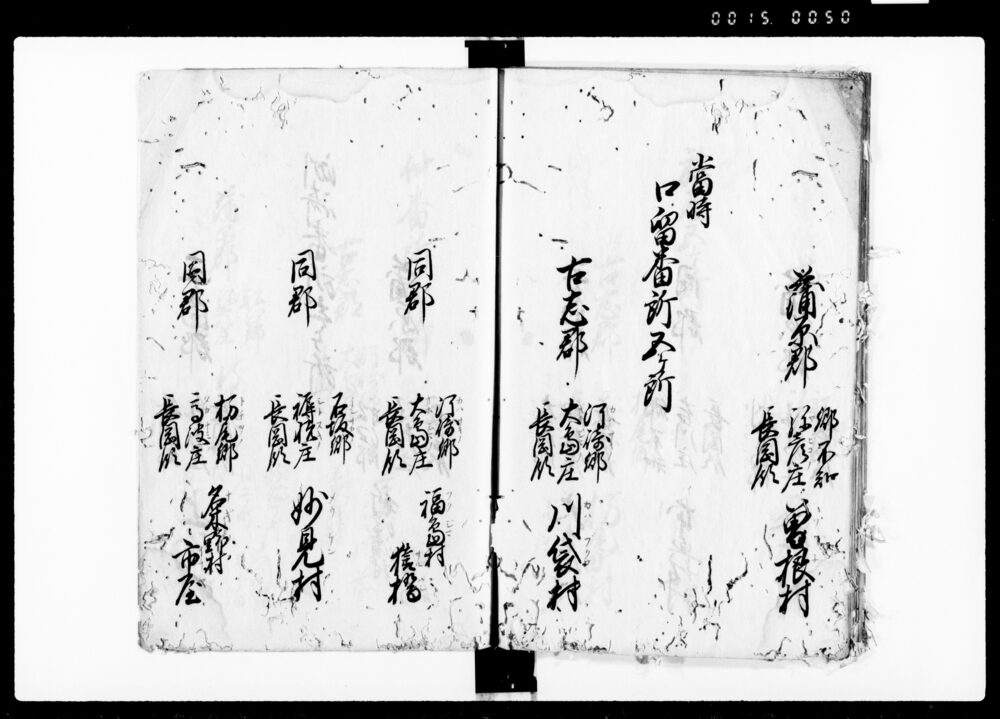 0015. 0050
蒲原郡
郷不知
弥彦庄
長岡領
曽根村
當時
口留番所五ヶ所
古志郡
河嶋郷
大島庄
長岡領
川袋村
同郡
大島庄
長岡領
福島村
同郡
石坂郷
長岡領
妙見村
同郡
栃尾郷
高波庄
長岡領
市屋